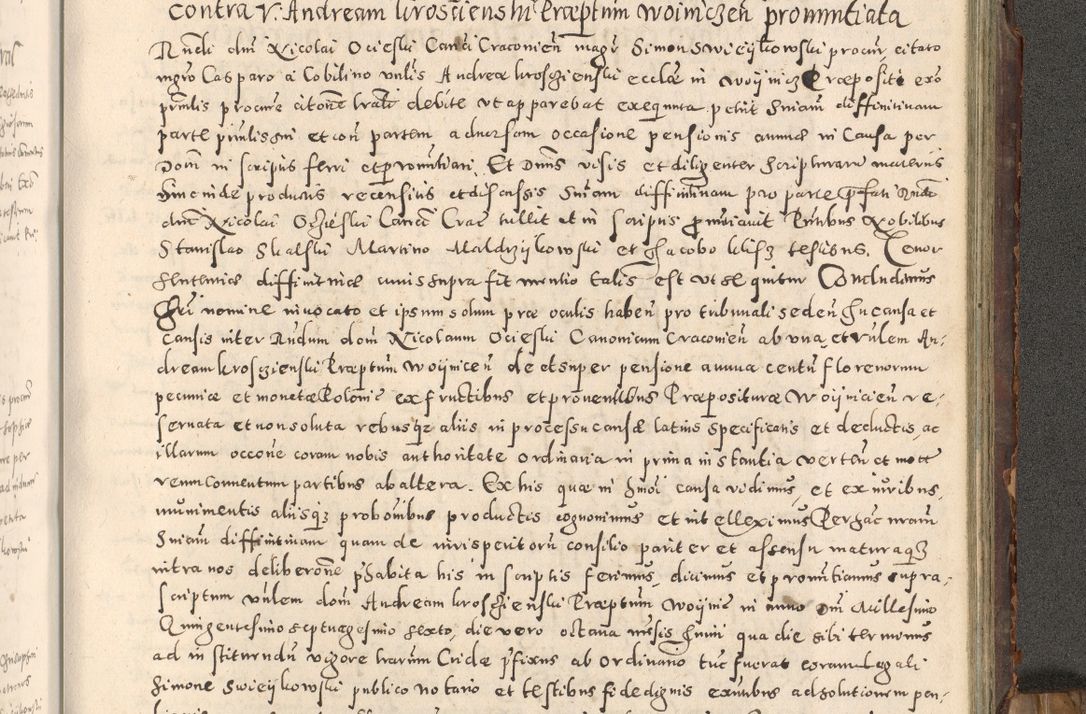 contra V. Andream Kroscienski Præptum Woiniczen̄ pronuntiata
Rndi dni Nicolai Ocieski Canci Cracouien̄ magr Simon Swieykowski procur, citato
mgro Casparo a Cobilino vnlis Andreæ Kroszienski ecclæ in Woynicz Præpositi exo
prīnlis procure citone trate debite vt apparebat exequuta petiit sniam diffinitiuam
parte prīnlis sui et con partem aduersam occasione pensionis annuæ in Causa per
Dom in scriptis ferri et pronuntiari. Et Dnns visis et diligenter scripturarum materiis
hincinde productis recensitis et discussis sniam diffinitiuam pro parte præfati Rndi
dni Nicolai Oczieski Canci Crac tullit et in scriptis pronūciauit Pntibus Nobilibus
Stanislao Skalski Martino Maldrzykowski et Jacobo Klisz testibus. Tenor
sententiæ diffinitiuæ cuius supra fit mentio talis est vt sequitur Concludimus
Chri nomine inuocato et ipsum solum præ oculis haben̄ pro tribunali seden̄ In causa et
Causis inter Rndum dom Nicolaum Ocieski Canonicum Cracouien̄ ab vna, et vnlem An-
dream Kroszienski Præptum Woynicen̄ de et super pensione annua centū florenorum
pecuniæ et monetæ Poloniæ ex fructibus et prouentibus Præpositure Woyinicien̄ re-
seruata et non soluta rebusqz aliis in processu causæ latius specificatis et deductis, ac
illarum occone coram nobis authoritate ordinaria in prima instantia verten̄ et mott
renum Conuentum partibus ab altera. Ex his quæ in hmoi causa vidimus, et ex iuribus,
munimentis aliisqz probonibus productis cognouimus et intelleximus Per hac nram
Sniam diffinitiuam quam de iurisperitoru consilio pariter et assensu maturaqz
intra nos deliberone phabita his in scriptis ferimus, dicimus et pronuntiamus supra-
scriptum vnlem dom Andream Kroszienski Præptum Woyinic in anno Dni Millesimo
Quingentesimo septuagesimo sexto, die vero octaua mensis Junii qua die sibi terminus
ad institurndu vigore trarum Cridæ pfixus ab Ordinario tuc fuerat coram legali
Simone Swieykowski publico notario et testibus fidedignis exntibus ad solutionem pen-